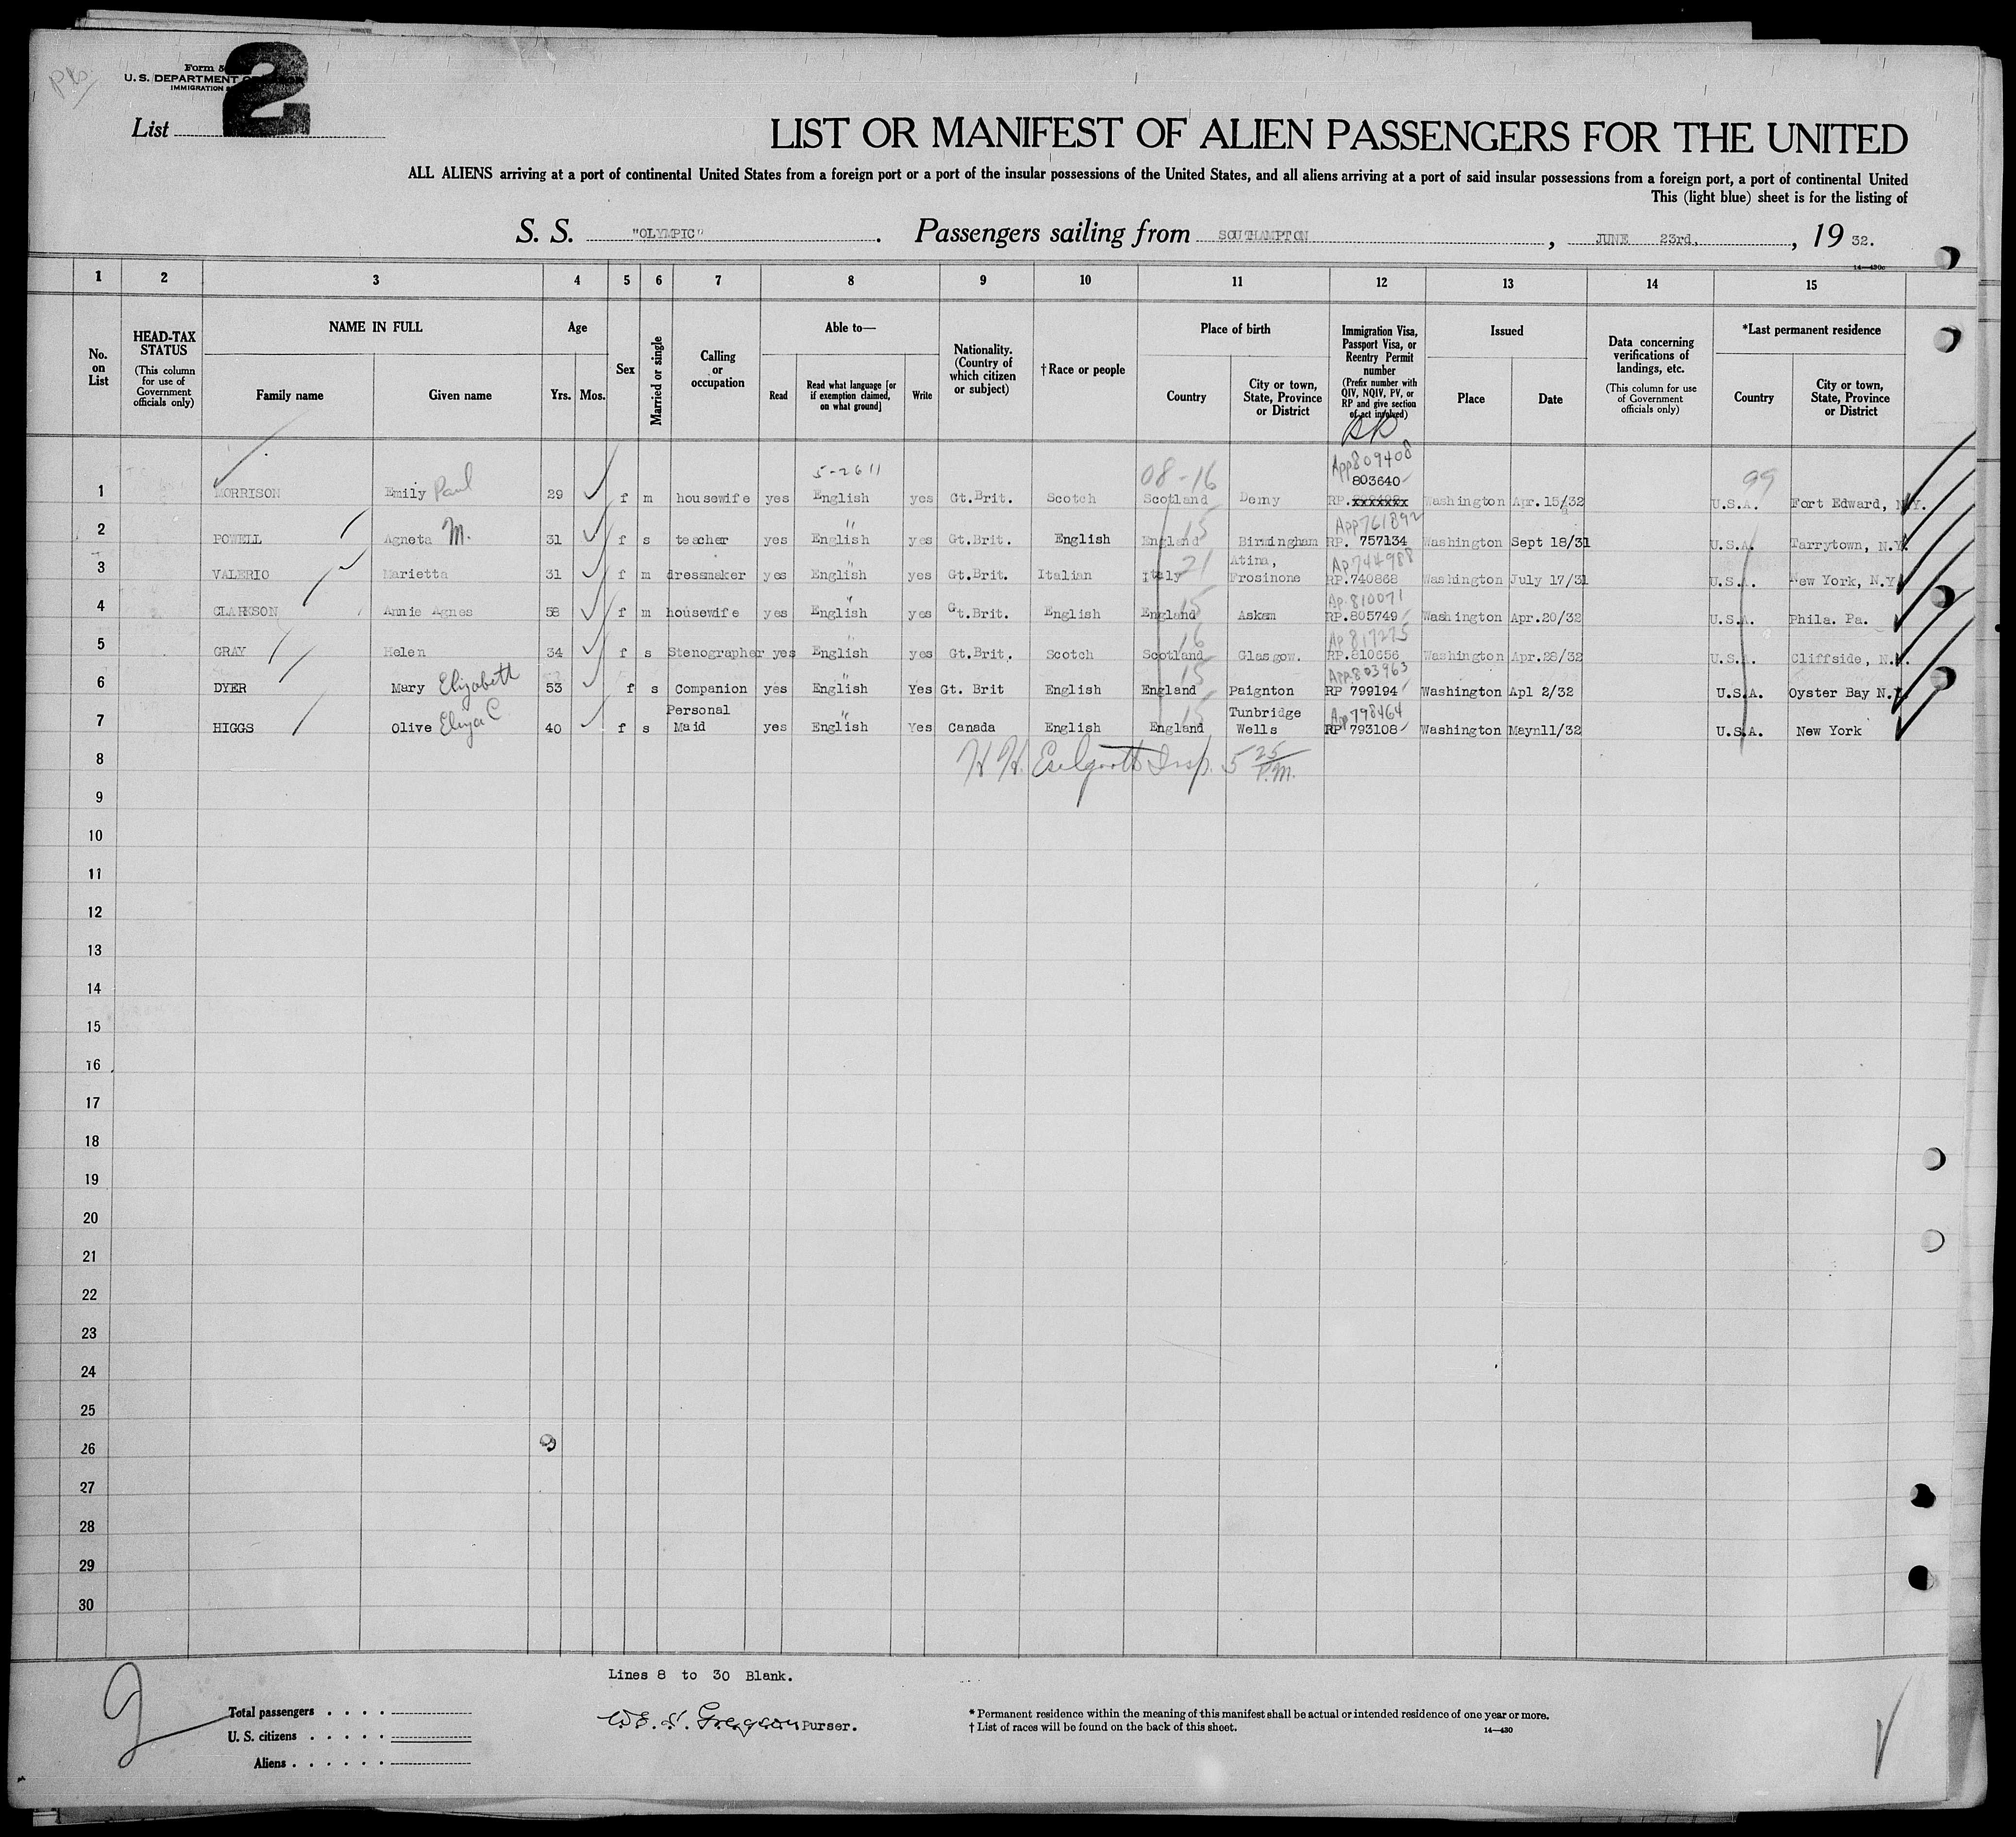 Form 5
U. S. DEPARTMENT OF LABOR
IMMIGRATION S
2
List
LIST OR MANIFEST OF ALIEN PASSENGERS FOR THE UNITED
ALL ALIENS arriving at a port of continental United States from a foreign port or a port of the insular possessions of the United States, and all aliens arriving at a port of said insular possessions from a foreign port, a port of continental United
This (light blue) sheet is for the listing of
S. S. "OLYMPIC". Passengers sailing from SOUTHAMPTON, JUNE 23rd, , 19 32.
14—430c
1 2 3 4 5 6 7 8 9 10 11 12 13 14 15
No. on List
HEAD-TAX STATUS
(This column for use of Government officials only)
NAME IN FULL
Family name Given name
Age
Yrs. Mos.
Sex
Married or single
Calling or occupation
Able to—
Read Read what language [or if exemption claimed, on what ground] Write
Nationality. (Country of which citizen or subject)
†Race or people
Place of birth
Country City or town, State, Province or District
Immigration Visa, Passport Visa, or Reentry Permit number
(Prefix number with QIV, NQIV, PV, or RP and give section of act involved)
Issued
Place Date
Data concerning verifications of landings, etc.
(This column for use of Government officials only)
*Last permanent residence
Country City or town, State, Province or District
5-26 11 08-16 App 809408 99
803640
1 MORRISON Emily Paul 29 f m housewife yes English yes Gt.Brit. Scotch Scotland Demy RP.xxxxxxx Washington Apr.15/32 U.S.A. Fort Edward, N.Y.
15 App 761892
2 POWELL Agneta M. 31 f s teacher yes English yes Gt.Brit. English England Birmingham RP. 757134 Washington Sept 18/31 U.S.A. Tarrytown, N.Y.
21 Atina, Ap 744988
3 VALERIO Marietta 31 f m dressmaker yes English yes Gt.Brit. Italian Italy Frosinone RP.740868 Washington July 17/31 U.S.A. New York, N.Y.
15 Ap. 810071
4 CLARKSON Annie Agnes 58 f m housewife yes English yes Gt.Brit. English England Askam RP.805749 Washington Apr.20/32 U.S.A. Phila. Pa.
16 Ap 817275
5 GRAY Helen 34 f s Stenographer yes English yes Gt.Brit. Scotch Scotland Glasgow. RP.810656 Washington Apr.28/32 U.S.A. Cliffside, N.J.
15 App. 803963
6 DYER Mary Elizabeth 53 f s Companion yes English Yes Gt. Brit English England Paignton RP 799194 Washington Apl 2/32 U.S.A. Oyster Bay N.Y.
Personal 15 Tunbridge App 798464
7 HIGGS Olive Eliza C 40 f s Maid yes English Yes Canada English England Wells RP 793108 Washington Maynll/32 U.S.A. New York
8 H H. Insp. 5 25 P.M.
9
10
11
12
13
14
15
16
17
18
19
20
21
22
23
24
25
26
27
28
29
30
Lines 8 to 30 Blank.
2
Total passengers . . . .
U. S. citizens . . . . .
Aliens . . . . . .
Purser.
* Permanent residence within the meaning of this manifest shall be actual or intended residence of one year or more.
† List of races will be found on the back of this sheet.
14—430